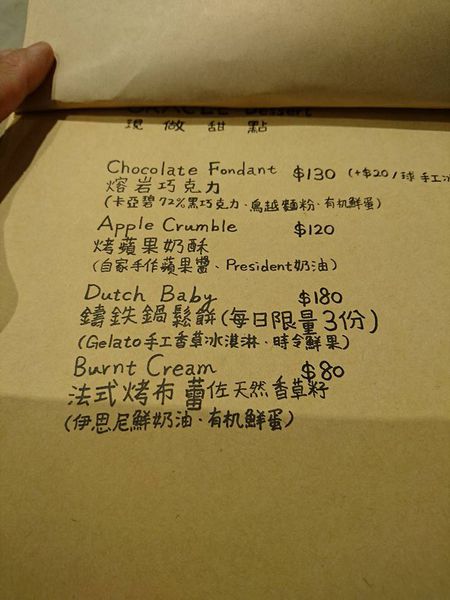 Dessert
現做甜點
Chocolate Fondant $130 (+$20/球 手工冰
熔岩巧克力
(卡亞碧72%黑巧克力、鳥越麵粉、有机鮮蛋)
Apple Crumble $120
烤蘋果奶酥
(自家手作蘋果醬、President奶油)
Dutch Baby $180
鑄鉄鍋鬆餅(每日限量3份)
(Gelato手工香草冰淇淋、時令鮮果)
Burnt Cream $80
法式烤布蕾佐天然香草籽
(伊思尼鮮奶油、有机鮮蛋)